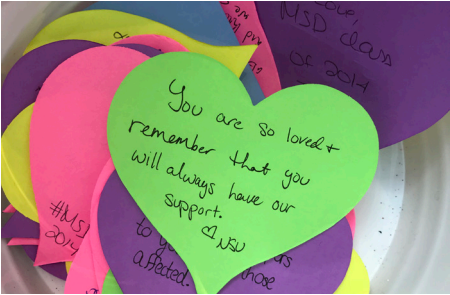 Love,
MSD class
of 2014
You are so loved +
remember that you
will always have our
support.
♡ NSU
#MSD
2014
to
those
affected.